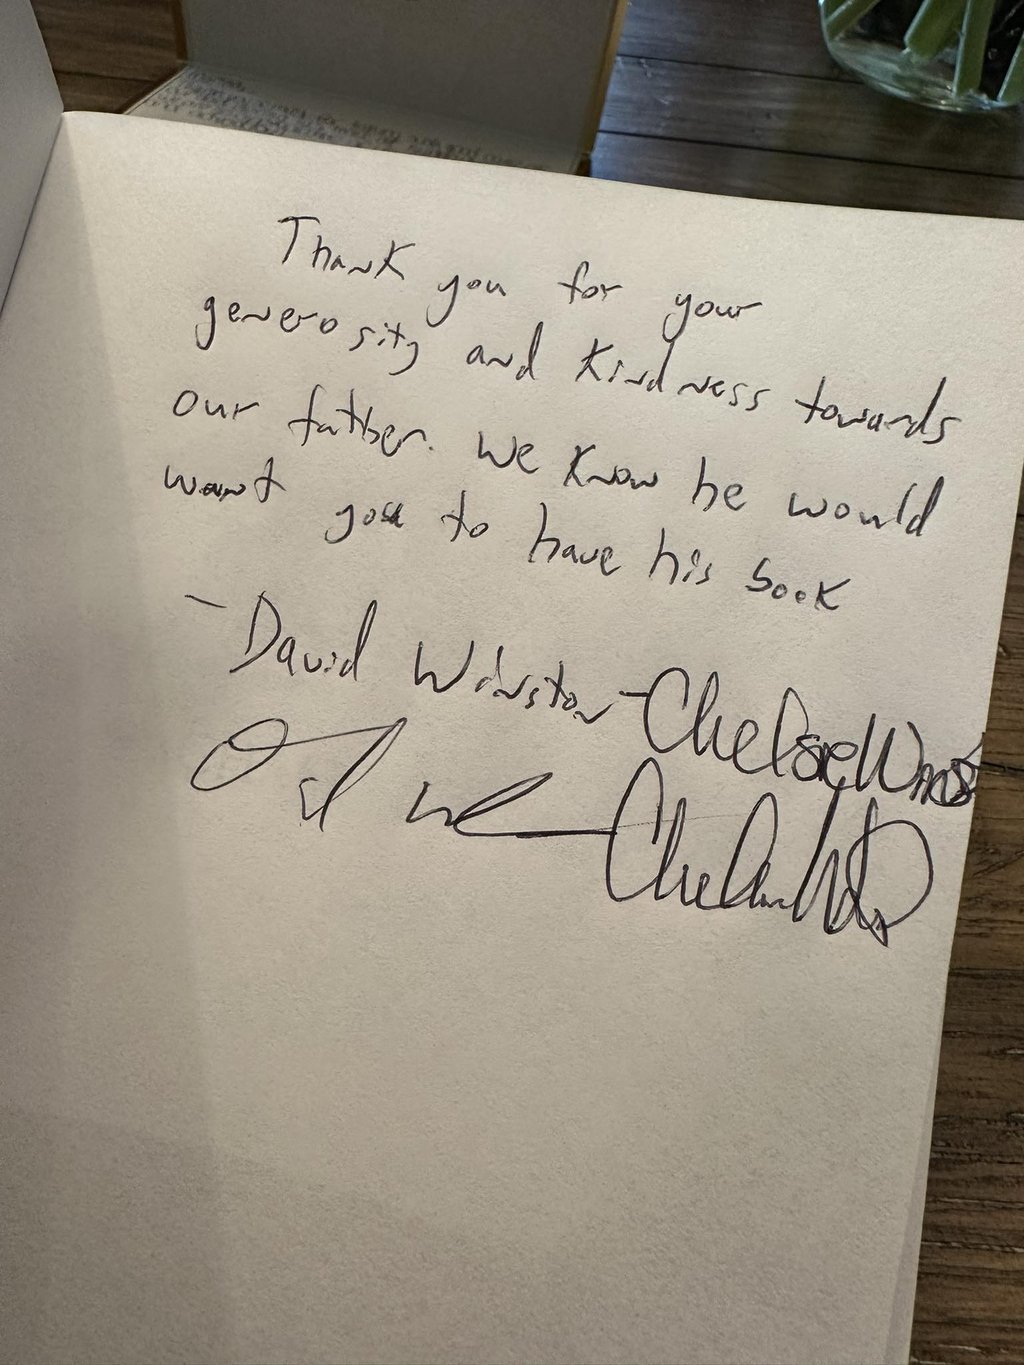 Thank you for your
generosity and kindness towards
our father. We know he would
want you to have his book
- David Winston - Chelsae Winston